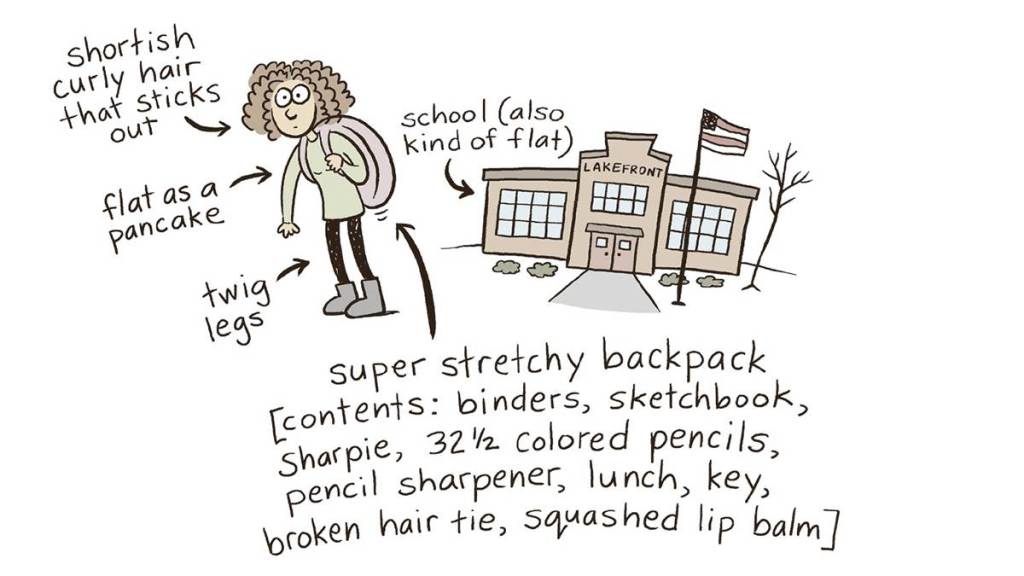 shortish
curly hair
that sticks
out
flat as a
pancake
twig
legs
school (also
kind of flat)
LAKEFRONT
super stretchy backpack
[contents: binders, sketchbook,
Sharpie, 32 ½ colored pencils,
pencil sharpener, lunch, key,
broken hair tie, squashed lip balm]